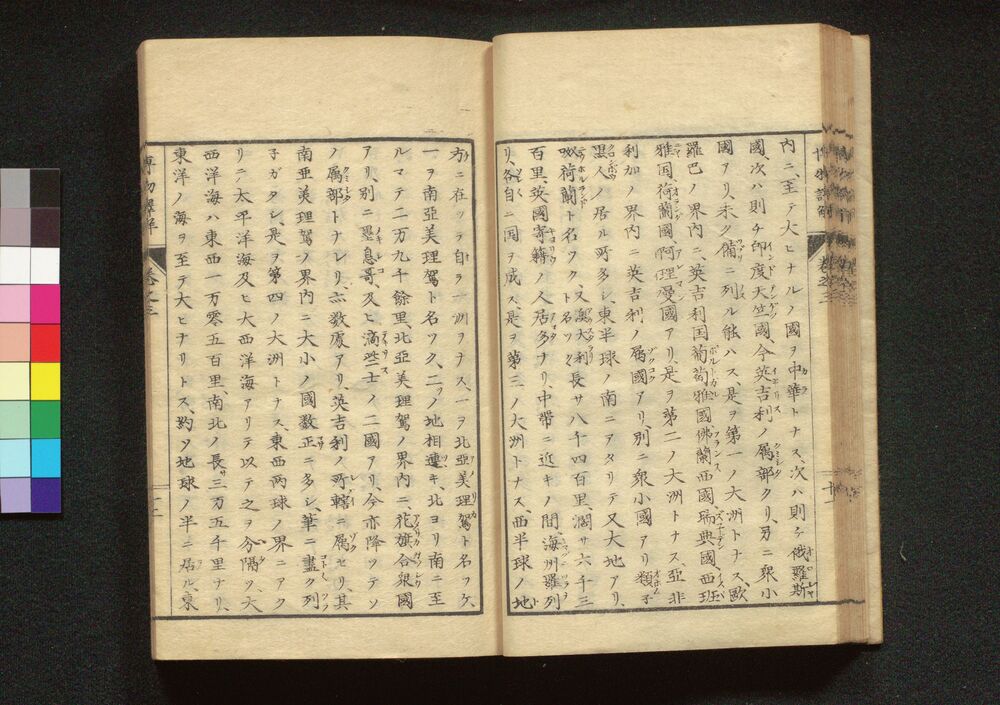 内ニ、至テ大ヒナルノ國ヲ中華トナス、次ハ則チ俄羅斯
國、次ハ則チ印度天竺國、今英吉利ノ属部タリ、另ニ衆小
國アリ、未タ備ニ列ル能ハス、是ヲ第一ノ大洲トナス、歐
羅巴ノ界内ニ、英吉利国葡萄雅國佛蘭西國瑞典國、西班
雅国、荷蘭國阿理曼國アリ、是ヲ第二ノ大洲トナス、亞非
利加ノ界内ニ英吉利ノ属國アリ、別ニ衆小國アリ類子
黒人ノ居ル所多シ、東半球ノ南ニアタリテ又大地アリ、
荷蘭ト名ツク、又澳大利ト名ツク、長サ八千四百里、濶サ六千三
百里、英國寄籍ノ人居多ナリ、中帯ニ近キノ間、海洲羅列
リ、各自ニ国ヲ成ス、是ヲ第三ノ大洲トナス、西半球ノ地
方ニ在ッテ自ラ一洲ヲナス、一ヲ北亞美理駕ト名ヲケ、
一ヲ南亞美理駕ト名ツク、二ツノ地相連キ、北ヨリ南ニ至
ルマテ二万九千餘里、北亞美理駕ノ界内ニ花旗合衆國
アリ、別ニ墨息哥、及ヒ滴些士ノ二國アリ、今亦降ツテソ
ノ属部トナレリ、六数處アリ、英吉利ノ所轄ニ属セリ、其
南亞美理駕ノ界内ニ大小ノ國数正ニ多シ、筆ニ盡ク列
子ガタシ、是ヲ第四ノ大洲トナス、東西両球ノ界ニアタ
リテ太平洋海及ヒ大西洋海アリテ以テ之ヲ分隔ツ、大
西洋海ハ東西一万零五百里、南北ノ長サ三万五千里ナリ、
東洋ノ海ヲ至テ大ヒナリトス、約ヲ地球ノ半ニ居ル、東
博物譯解 巻之三